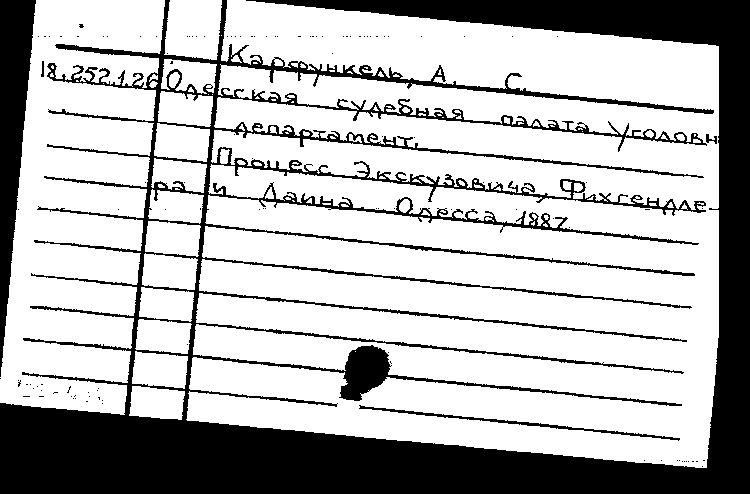 Карфункель, А. С.
18.252.1.26 Одесская судебная палата. Уголовн
департамент.
Процесс Экскузовича, Фихгендле-
ра и Даина. Одесса, 1887